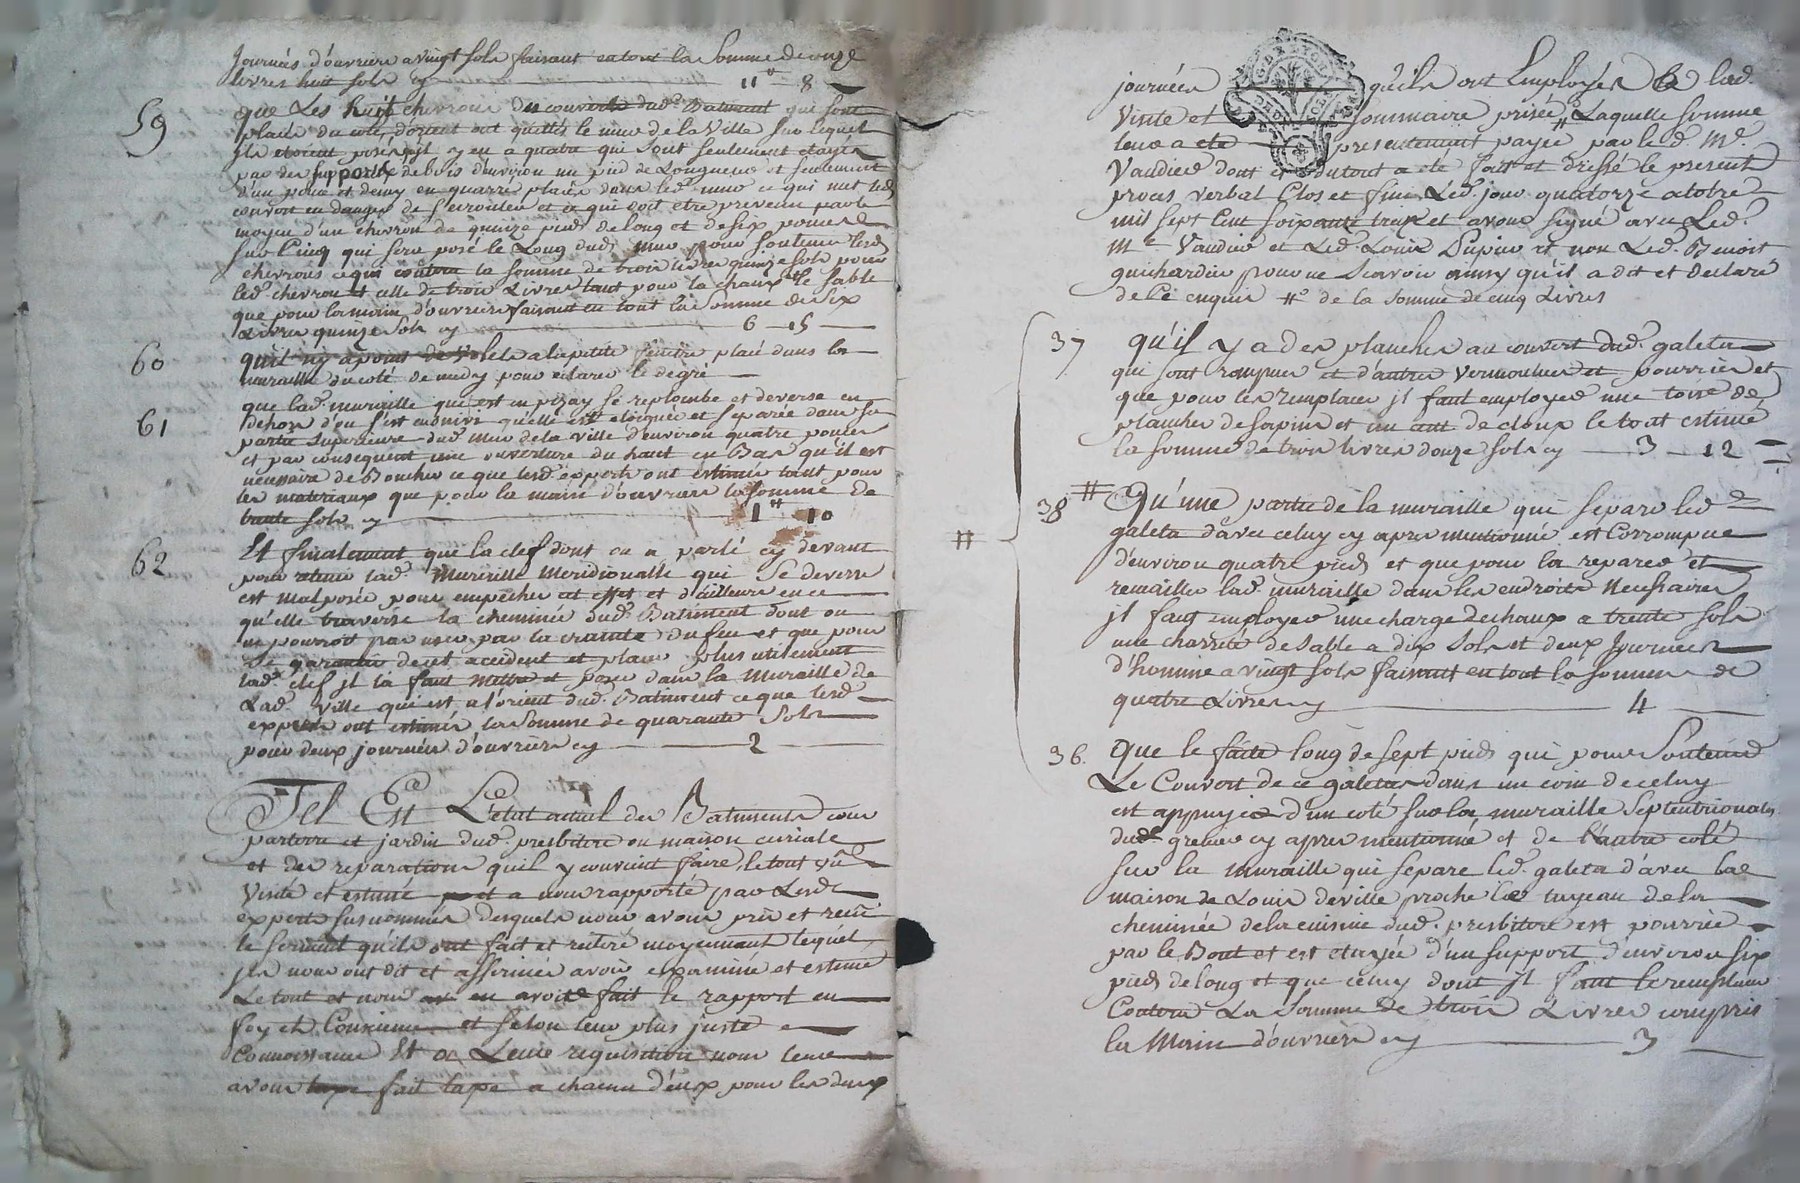 journées d'ouvriers a vingt sols faisant en tout la somme de onze
livres huit sols cy 11# 8
59 que Les huit chevrons du couvert dud. Batiment qui sont
placés du coté d'orient ont quittés le mur de la Ville sur lequel
ils etoient posés qu'il y en a quatre qui sont seulement etayés
par des supports de bois d'environ un pied de Longueur et seulement
d'un pouce et demy en quarré placés dans led. mur ce qui met led.
couvert en danger de s'ecrouler et ce qui doit etre prevenu par le
moyen d'un chevron de quinze pieds de long et de six pouces
sur Cinq qui sera posé le Long dud. mur pour soutenir lesd.
chevrons ce qui coutera la somme de trois livres quinze sols pour
led. chevron et celle de trois Livres tant pour la chaux et le sable
que pour la main d'ouvriers faisant en tout la somme de six
Livres quinze sols cy 6 15
60 qu'il n'y a point de volets a la petite fenetre placé dans la
muraille du coté de midy pour eclairer le degré
61 que lad. muraille qui est en pizay se replombe et deverse en
dehors d'ou s'est ensuivi qu'elle est eloignée et separée dans sa
partie superieure dud. mur de la ville d'environ quatre pouces
et par consequent une ouverture du haut en Bas qu'il est
necessaire de Boucher ce que lesd. experts ont estimés tant pour
les materiaux que pour la main d'ouvriers la somme de
trente sols cy 1# 10
62 Et finalement que la clef dont on a parlé cy devant
pour retenir lad. Muraille Meridionalle qui Se deverse
est mal posée pour empecher cet effet et d'ailleurs en ce
qu'elle traverse la cheminée dud. Batiment dont on
ne pourroit pas user par la crainte du feu et que pour
se garantir de cet accident et placer plus utilement
lad. clef il la faut mettre et poser dans la Muraille de
Lad. Ville qui est a l'orient dud. Batiment ce que lesd.
experts ont estimés la somme de quarante Sols
pour deux journées d'ouvriers cy 2
Tel Est L'état actuel des Batiments cour
parterre et jardin dud. presbitere ou maison curiale
et des reparations qu'il y convient faire le tout vû
Visité et estimé et a nous rapporté par Lesd.
experts susnommés desquels nous avons pris et receu
le serment qu'ils ont fait et reiteré moyennant lequel
ils nous ont dit et affirmés avoir examiné et estimé
Le tout et nous en avoir fait le rapport en
foy et Conscience et selon leur plus juste
Connoissance Et a Leur requisition nous leur
avons taxe fait taxe a chacun d'eux pour les deux
journées qu'ils ont Employés a lad.
Visite et sommaire prisée # Laquelle somme
leur a eté presentement payée par led. Mr.
Vaudier dont et du tout a eté fait et dressé le present
procés verbal Clos et fini Led. jour quatorze octobre
mil sept Cent soixante trois et avons signé avec Led.
Mr. Vaudier et Led. Louis Dupin et non Led. Benoit
guichardin pour ne scavoir ainsy qu'il a dit et declaré
de Ce enquis # de la somme de cinq Livres
37 qu'il y a des planches au couvert dud. galetas
qui sont rompues et d'autres vermoulues et pourries et
que pour les remplacer il faut employer une toise de
planches de sapin et un cent de cloux le tout estimé
la somme de trois livres douze sols cy 3 12
38 # Qu'une partie de la muraille qui separe led.
galetas d'avec celuy cy apres mentionné est Corrompue
d'environ quatre pieds et que pour la reparer et
remailler lad. muraille dans les endroits Necessaires
il faut employer une charge de chaux a trente sols
une charrée de sable a dix Sols et deux Journées
d'homme a vingt sols faisant en tout la somme de
quatre Livres cy 4
#
36. que le faite long de sept pieds qui pour Soutenir
Le Couvert de ce galetas dans un coin de celuy
est appuyé d'un coté sur la muraille Septentrionale
dud. grenier cy apres mentionné et de l'autre coté
sur la muraille qui separe led. galetas d'avec la
maison de Louis Deville proche le tuyeau de la
cheminée de la cuisine dud. presbitere est pourrie
par le Bout et est etayée d'un support d'environ six
pieds de long et que celuy dont il faut le remplacer
Coutera La Somme de trois Livres compris
la Main d'ouvriers cy 3